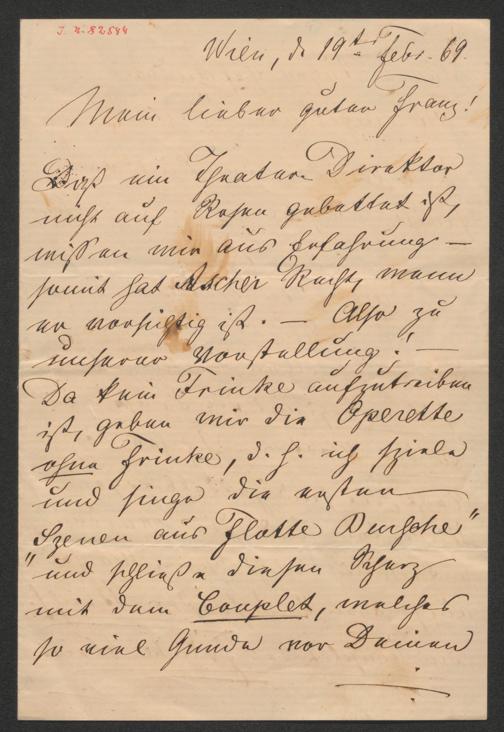 I. N. 82584
Wien, d. 19ten Febr. 69.
Mein lieber guter Franz!
Daß ein Theater-Direktor
nicht auf Rosen gebettet ist,
wissen wir aus Erfahrung —
somit hat Ascher Recht, wenn
er vorsichtig ist. — Also zu
unserer Vorstellung! —
Da kein Frinke aufzutreiben
ist, geben wir die Operette
ohne Frinke, d. h. ich spiele
und singe die ersten
Szenen aus Flotte Bursche"
"und schließe diesen Scherz
mit dem Couplet, welches
so viel Gnade vor Deinen